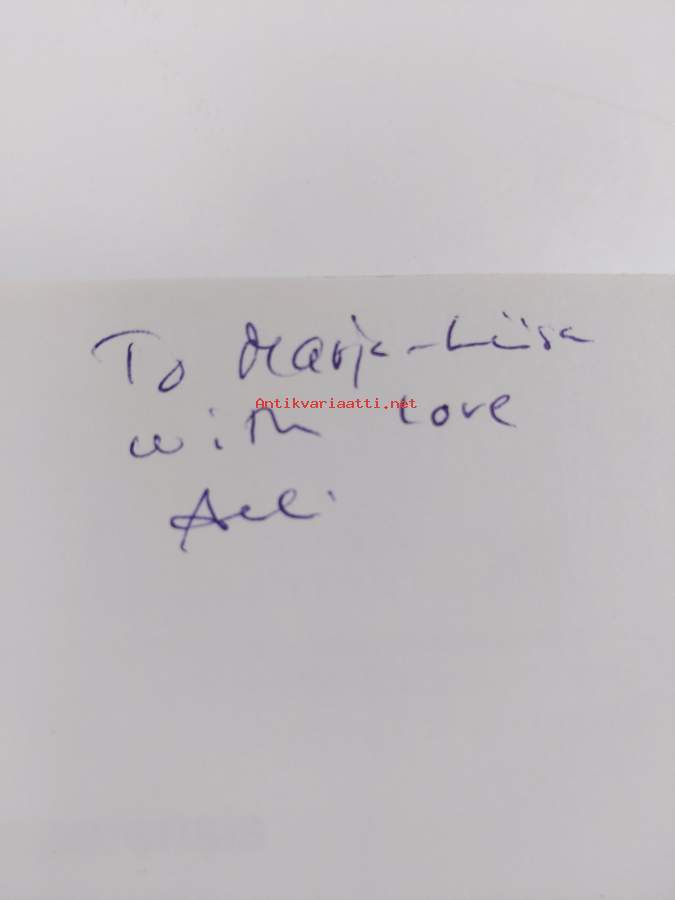 To Marja-Liisa
Antikvariaatti.net
with love
Alli